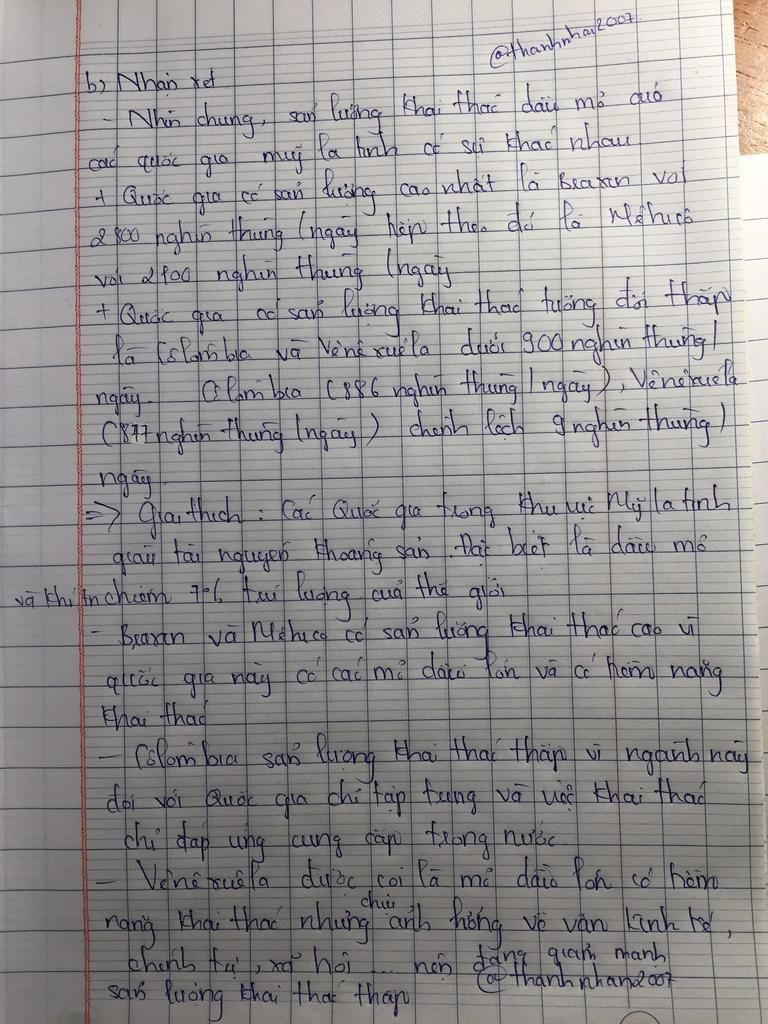 @thanhnhan2007
b) Nhận xét
- Nhìn chung, sản lượng khai thác dầu mỏ của
các quốc gia mỹ la tinh có sự khác nhau
+ Quốc gia có sản lượng cao nhất là Braxin với
2800 nghìn thùng/ngày tiếp theo đó là Mêhicô
với 2100 nghìn thùng/ngày
+ Quốc gia có sản lượng khai thác tương đối thấp
là Côlômbia và Vênêxuêla dưới 900 nghìn thùng/
ngày. Côlômbia (886 nghìn thùng/ngày), Vênêxuêla
(877 nghìn thùng/ngày) chênh lệch 9 nghìn thùng/
ngày
=> Giải thích: Các Quốc gia trong khu vực Mỹ la tinh
giàu tài nguyên khoáng sản. Đặc biệt là dầu mỏ
và khí tn chiếm trữ lượng của thế giới
- Braxin và Mêhicô có sản lượng khai thác cao vì
quốc gia này có các mỏ dầu lớn và có tiềm năng
khai thác
- Côlômbia sản lượng khai thác thấp vì ngành này
đối với Quốc gia chỉ tập trung và việc khai thác
chỉ đáp ứng cung cấp trong nước
- Vênêxuêla được coi là mỏ dầu lớn có tiềm
năng khai thác nhưng chịu ảnh hưởng về vấn kinh tế,
chính trị, xã hội ... nên đang giảm mạnh
@thanhnhan2007
sản lượng khai thác thấp